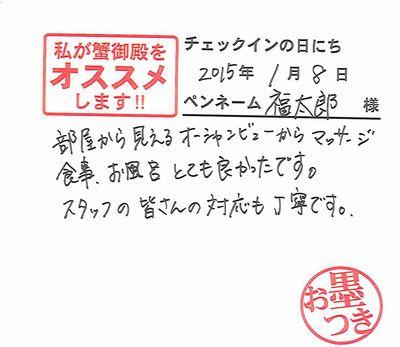 私が蟹御殿を
オススメ
します!!
チェックインの日にち
2015年 1月 8日
ペンネーム 福太郎 様
部屋から見えるオーシャンビューからマッサージ
食事、お風呂とても良かったです。
スタッフの皆さんの対応も丁寧です。
お墨つき